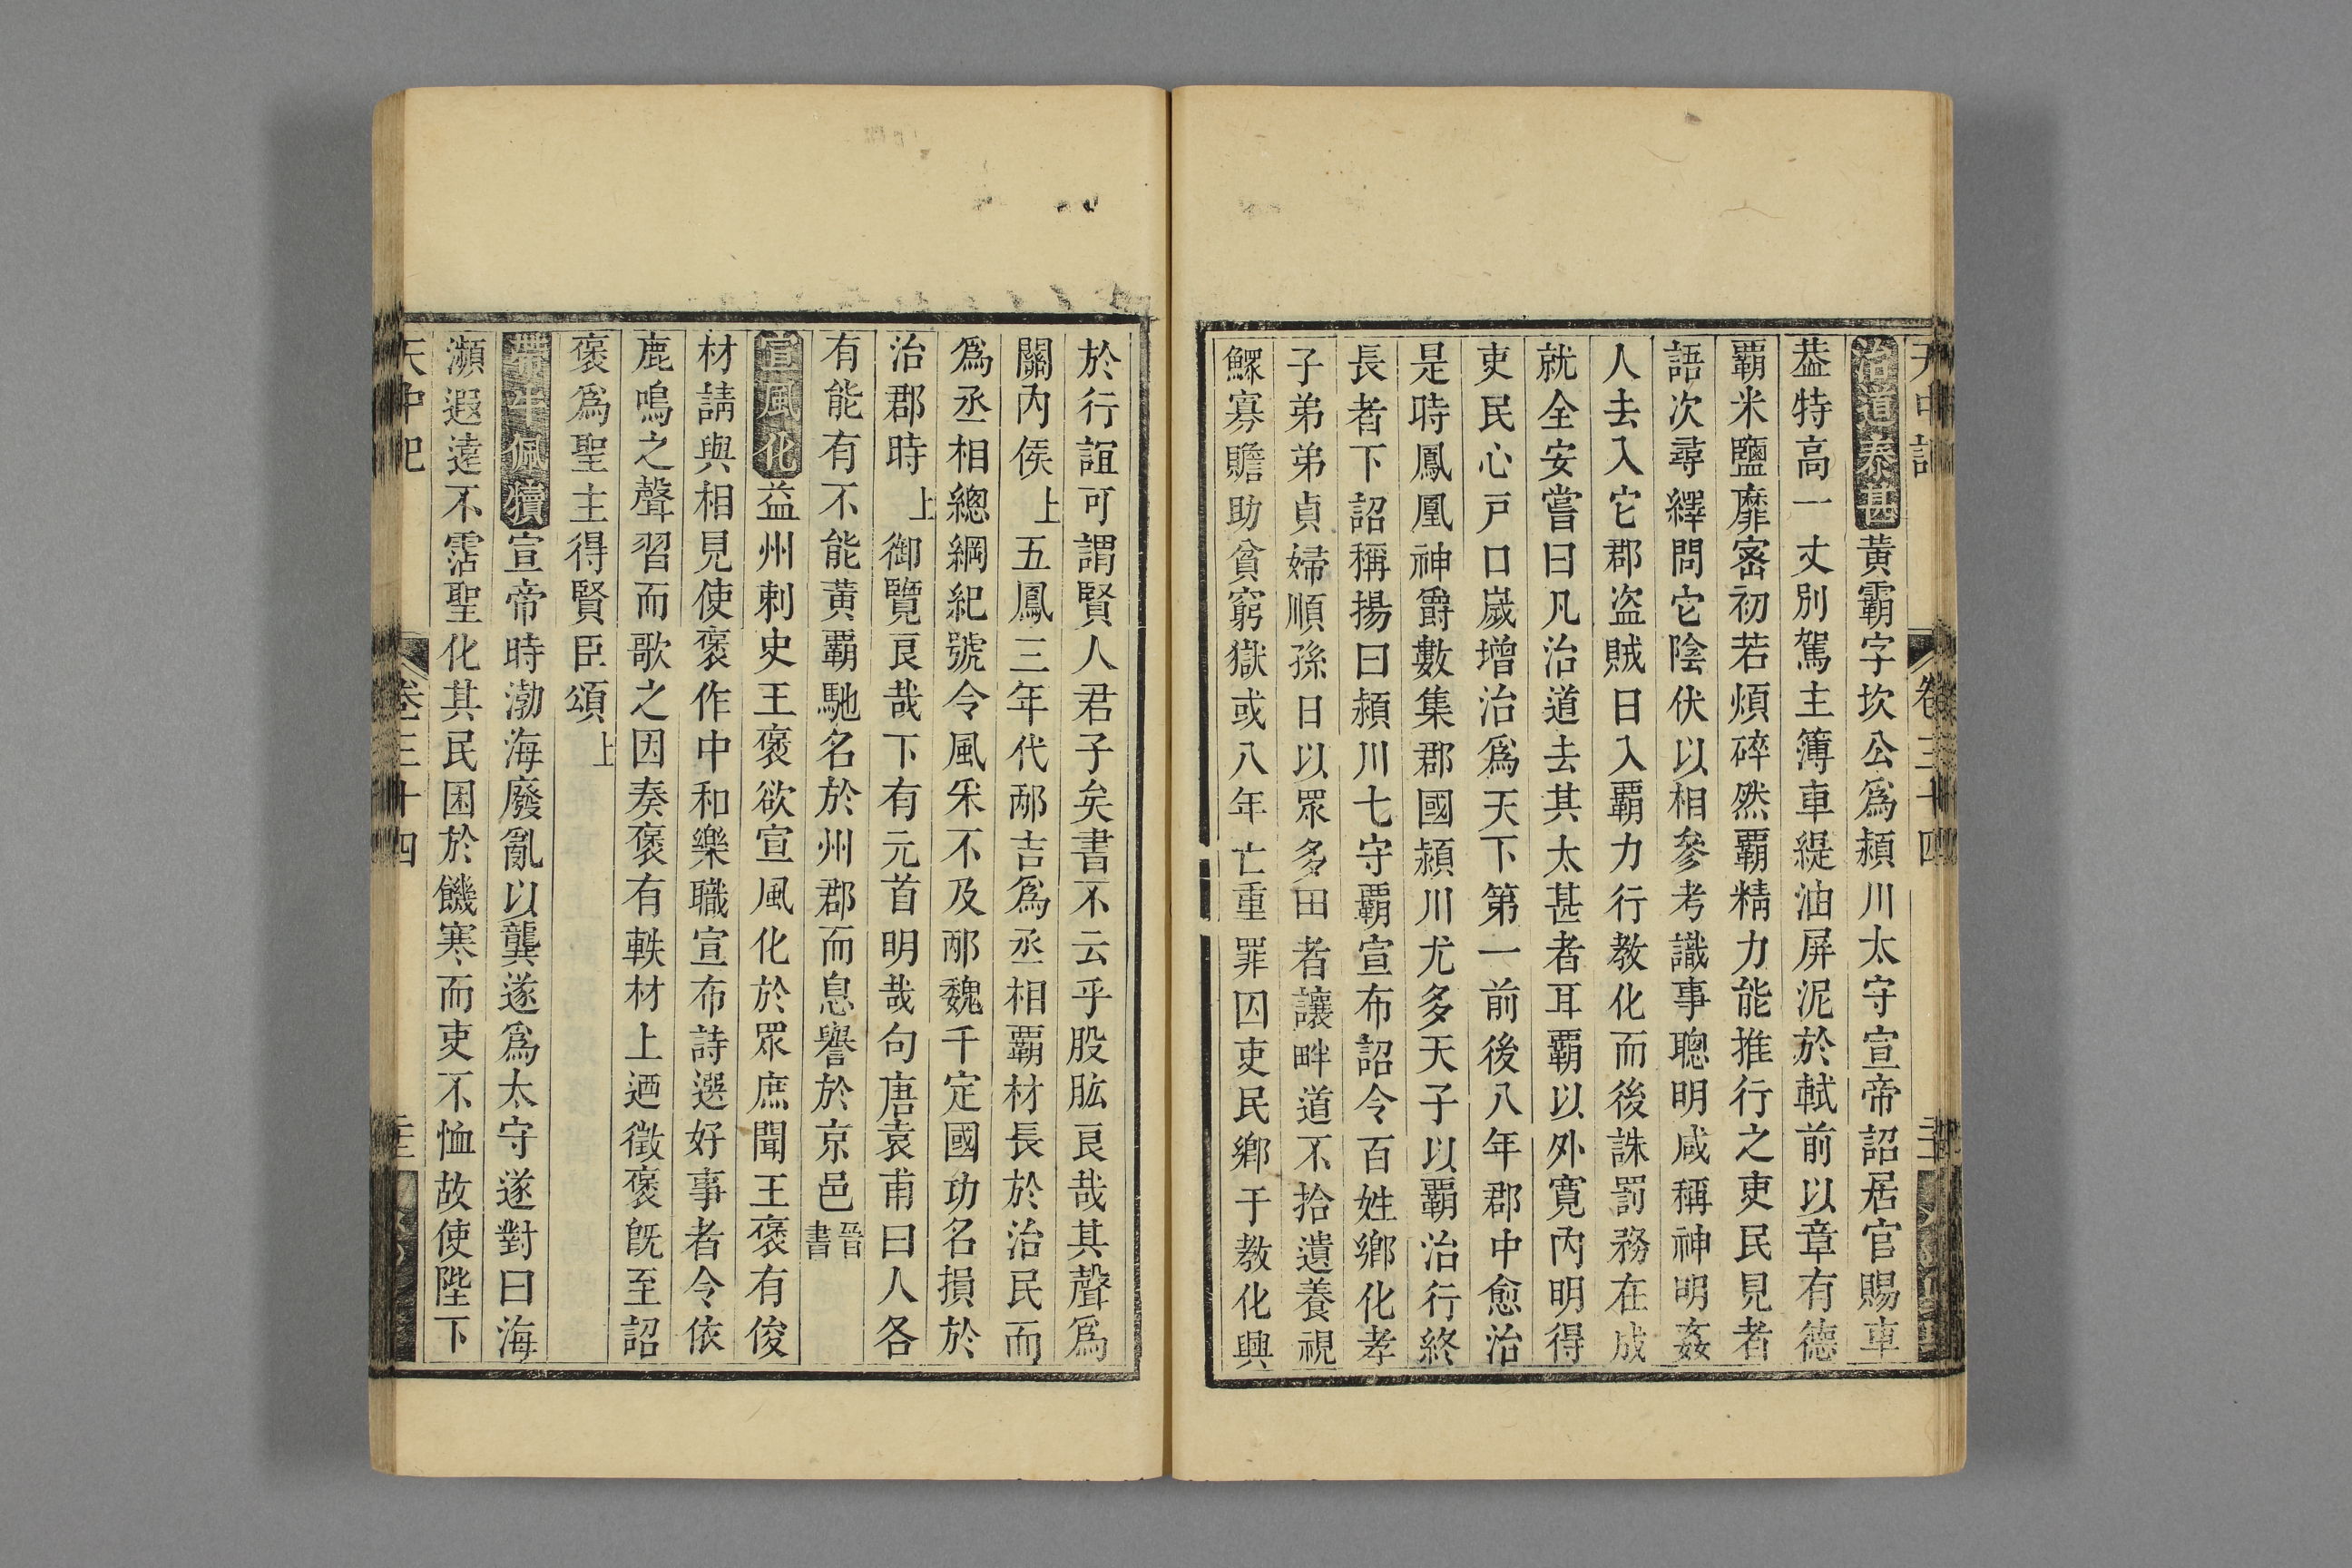 天中記 卷三十四
治道泰甚黃霸字坎公爲潁川太守宣帝詔居官賜車
葢特高一丈別駕主簿車緹油屏泥於軾前以章有德
霸米鹽靡宻初若煩碎然霸精力能推行之吏民見者
語次尋繹問它陰伏以相參考識事聰明咸稱神明姦
人去入它郡盜賊日入霸力行教化而後誅罰務在成
就全安嘗曰凡治道去其太甚者耳霸以外寬內明得
吏民心戸口嵗增治爲天下第一前後八年郡中愈治
是時鳳凰神爵數集郡國潁川尤多天子以霸治行終
長者下詔稱揚曰潁川七守霸宣布詔令百姓鄉化孝
子弟弟貞婦順孫日以眾多田者讓畔道不拾遺養視
鰥寡贍助貧窮獄或八年亡重罪囚吏民鄉于教化興
於行誼可謂賢人君子矣書不云乎股肱良哉其聲爲
關內侯上五鳳三年代邴吉爲丞相霸材長於治民而
爲丞相總綱紀號令風采不及邴魏千定國功名損於
治郡時上御覽良哉下有元首明哉句唐袁甫曰人各
有能有不能黃霸馳名於州郡而息譽於京邑晉書
宣風化益州刺史王褒欲宣風化於眾庶聞王褒有俊
材請與相見使褒作中和樂職宣布詩選好事者令依
鹿鳴之聲習而歌之因奏褒有軼材上迺徵褒旣至詔
褒爲聖主得賢臣頌上
帶牛佩犢宣帝時渤海廢亂以龔遂爲太守遂對曰海
瀕遐遠不霑聖化其民困於饑寒而吏不恤故使陛下
天中記 卷三十四